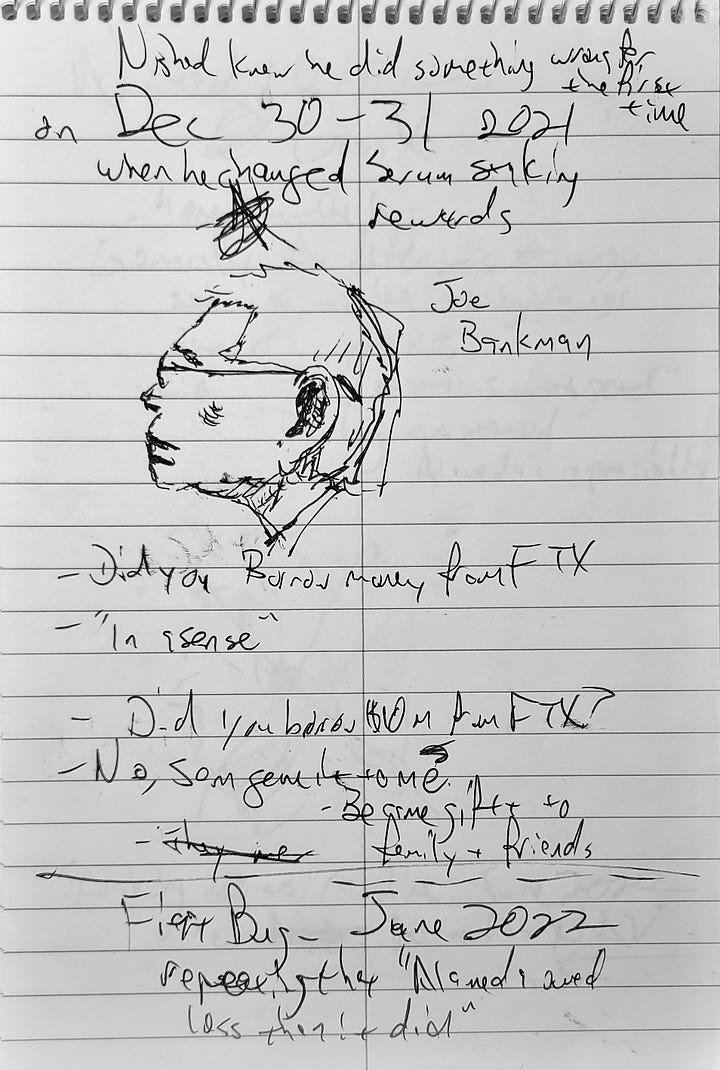 Nishad knew he did something wrong for
the first
time
on Dec 30-31 2021
when he changed Serum staking
rewards
Joe
Bankman
- Did you Borrow money from FTX
- "In a sense"
- Did you borrow $10m from FTX?
- No, Sam gave it to me.
- Became gifts to
family + friends
- They were
Fiat Bug - June 2022
repeating that "Alameda owed
less than it did"